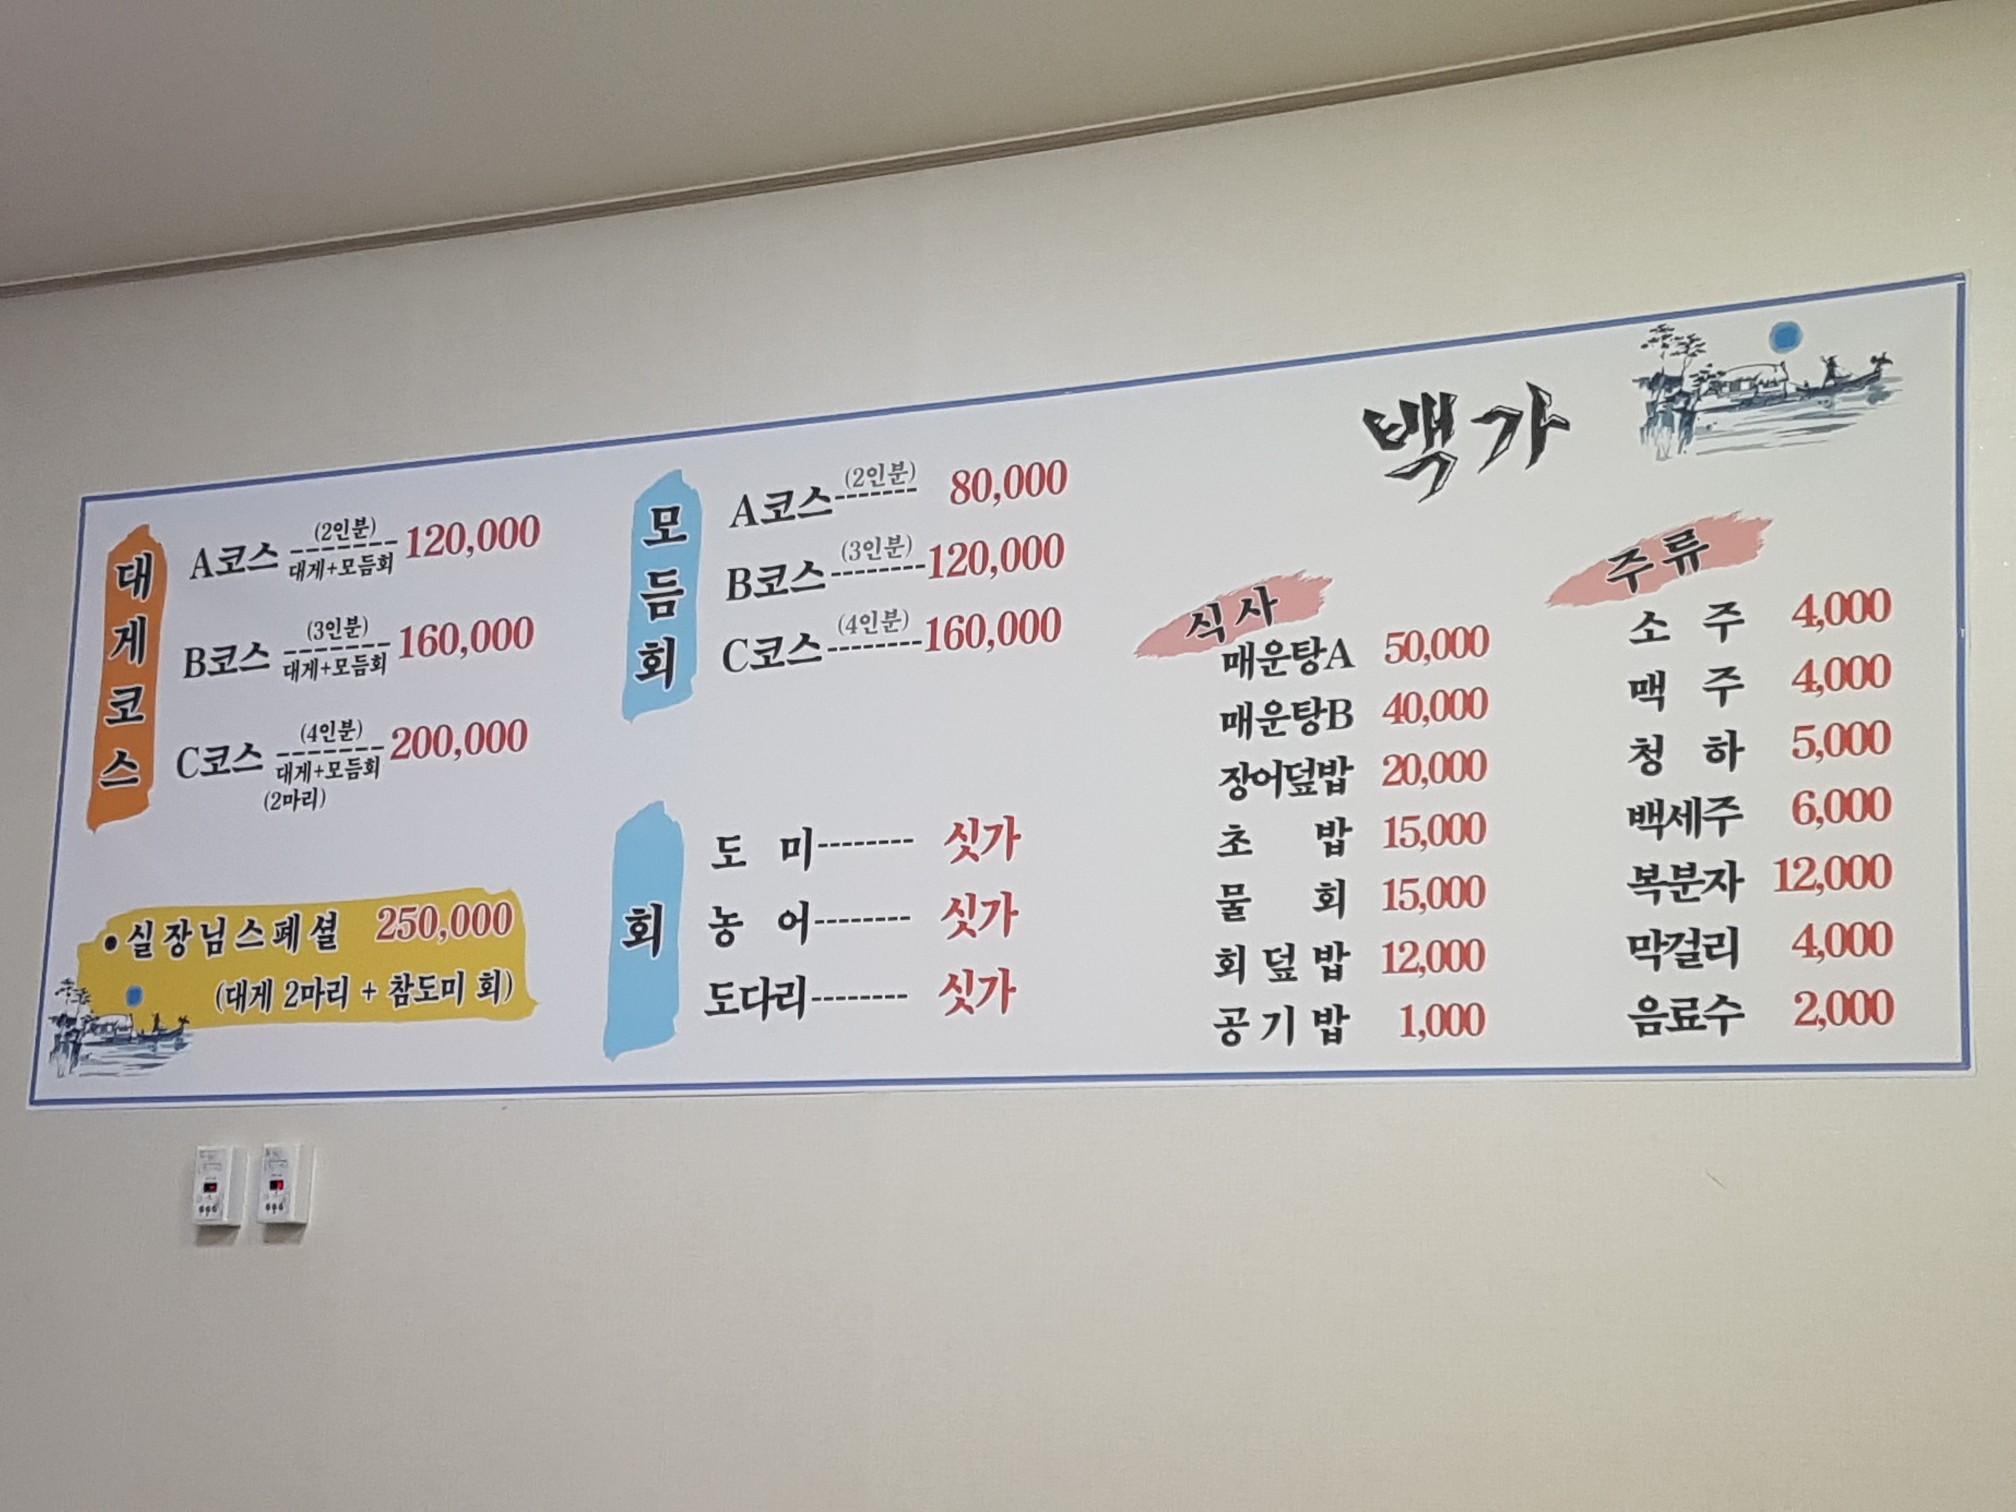 백가
대게코스
A코스 (2인분) 120,000
대게+모듬회
B코스 (3인분) 160,000
대게+모듬회
C코스 (4인분) 200,000
대게+모듬회
(2마리)
•실장님스페셜 250,000
(대게 2마리 + 참도미 회)
모듬회
A코스 (2인분) 80,000
B코스 (3인분) 120,000
C코스 (4인분) 160,000
회
도 미-------- 싯가
농 어-------- 싯가
도다리-------- 싯가
식사
매운탕A 50,000
매운탕B 40,000
장어덮밥 20,000
초 밥 15,000
물 회 15,000
회덮밥 12,000
공기밥 1,000
주류
소 주 4,000
맥 주 4,000
청 하 5,000
백세주 6,000
복분자 12,000
막걸리 4,000
음료수 2,000